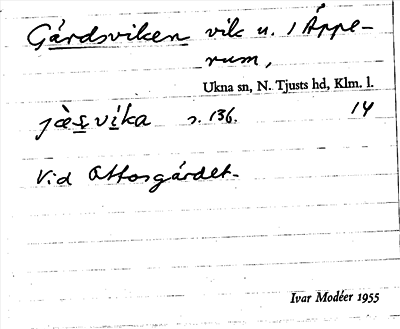 Gårdsviken vik u. / Äppe-
rum,
Ukna sn, N. Tjusts hd, Klm. l.
jæ̀ṣvíka s. 136. 14
Vid Ottosgårdet.
Ivar Modéer 1955